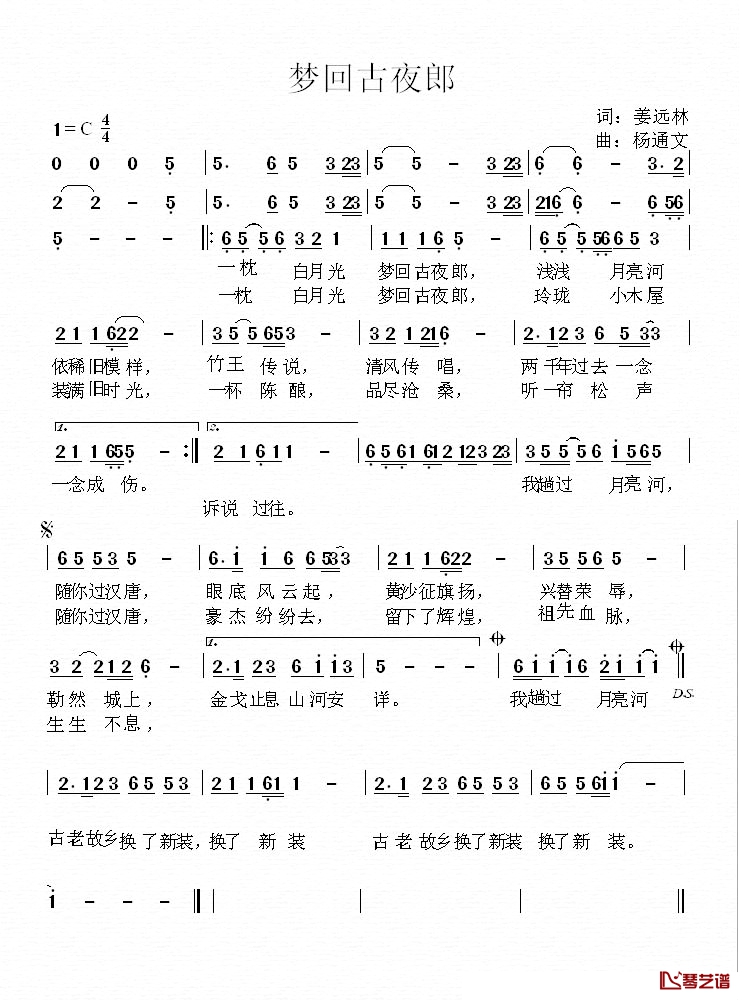 梦回古夜郎
词：姜远林
1=C 4/4
曲：杨通文
0 0 0 5 | 5· 6 5 3 23 | 5 5 - 3 23 | 6 6 - 3·2 |
2 2 - 5 | 5· 6 5 3 23 | 5 5 - 3 23 | 216 6 - 6 56 |
5 - - - |: 6 5 5 6 3 2 1 | 1 1 1 6 5 - | 6 5 5 56 6 5 3 |
一枕 白月光 梦回古夜郎， 浅浅 月亮河
一枕 白月光 梦回古夜郎， 玲珑 小木屋
2 1 1 6 2 2 - | 3 5 5 6 5 3 - | 3 2 1 2 1 6 - | 2· 1 2 3 6 5 3 3 |
依稀旧模样， 竹王 传说， 清风传 唱， 两千年过去一念
装满旧时光， 一杯 陈酿， 品尽沧 桑， 听一帘 松 声
1. 2.
2 1 1 6 5 5 - :| 2 1 6 1 1 - | 6 5 6 1 6 1 2 1 2 3 2 3 | 3 5 5 5 6 i 5 6 5 |
一念成 伤。 我趟过 月亮河，
诉说 过往。
6 5 5 3 5 - | 6· i i 6 6 5 3 3 | 2 2 1 6 2 2 - | 3 5 5 6 5 - |
随你过汉唐， 眼底 风云起， 黄沙征旗扬， 兴替荣 辱，
随你过汉唐， 豪杰纷纷去， 留下了辉煌， 祖先血 脉，
1.
3 2 2 2 1 2 6 - | 2· 1 2 3 6 i i 3 | 5 - - - | 6 i i i 6 2 i i i ||
勒然 城上， 金戈止息山河安 详。 我趟过 月亮河
D.S.
生生 不息，
2· 1 2 3 6 5 5 3 | 2 1 1 1 6 1 - | 2· 1 2 3 6 5 5 3 | 6 5 5 6 i i - |
古老故乡换了新装，换了 新 装 古老故乡换了新装 换了新 装。
i - - - ||
琴艺谱